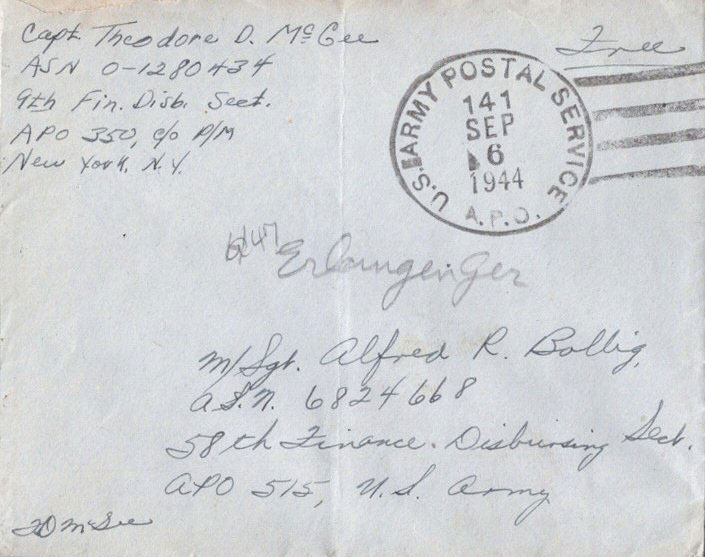 Capt. Theodore D. McGee
ASN O-1280434
9th Fin. Disb. Sect.
APO 350, c/o P/M
New York, N.Y.
Free
U.S. ARMY POSTAL SERVICE
141
SEP
6
1944
A.P.O.
Erlangen Ger
M/Sgt. Alfred R. Bolbig,
A.S.N. 6824668
58th Finance Disbursing Sect.
APO 515, U.S. Army
TD McGee